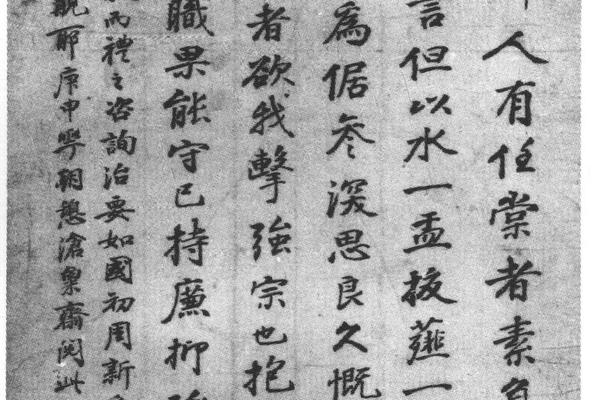 人有任棠者素
言但以水一盂拔薤一
為倨參深思良久慨
者欲我擊強宗也抱
職果能守己持廉抑強
而禮之咨詢治要如國初周新
觀耶庚申學朝懋滄象齋閱此